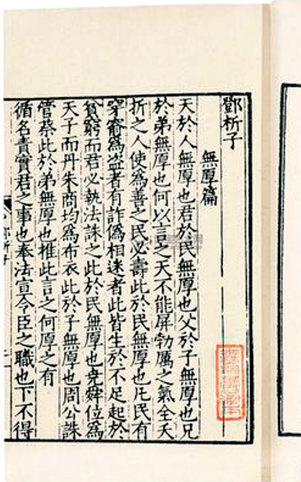 鄧析子
無厚篇
天於人無厚也君於民無厚也父於子無厚也兄
於弟無厚也何以言之天不能屏勃厲之氣全夭
折之人使爲善之民必壽此於民無厚也凡民有
穿窬爲盜者有詐僞相迷者此皆生於不足起於
貧窮而君必執法誅之此於民無厚也堯舜位爲
天子而丹朱商均爲布衣此於子無厚也周公誅
管蔡此於弟無厚也推此言之何厚之有
循名責實君之事也奉法宣令臣之職也下不得